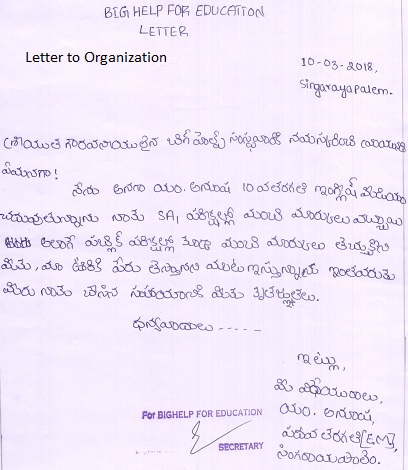 BIG HELP FOR EDUCATION
LETTER
Letter to Organization
10-03-2018,
Singarayapalem.
శ్రీయుత గౌరవనీయులైన బిగ్ హెల్ప్ సంస్థవారికి నమస్కరించి వ్రాయునది
ఏమనగా!
నేను అనగా యం. అనూష 10 వతరగతి ఇంగ్లీష్ మీడియం
చదువుతున్నాను నాకు SA1 పరీక్షల్లో మంచి మార్కులు వచ్చాయి
అలాగే పబ్లిక్ పరీక్షల్లో కూడా మంచి మార్కులు తెచ్చుకొని
మీకు, మా ఊరికి పేరు తెస్తానని మాట ఇస్తున్నాను ఇంతవరకు
మీరు నాకు చేసిన సహాయానికి మీకు కృతజ్ఞతలు.
ధన్యవాదాలు -----
ఇట్లు,
మీ విధేయురాలు,
యం. అనూష,
పదవ తరగతి[EM],
సింగరాయపాలెం.
For BIGHELP FOR EDUCATION
SECRETARY